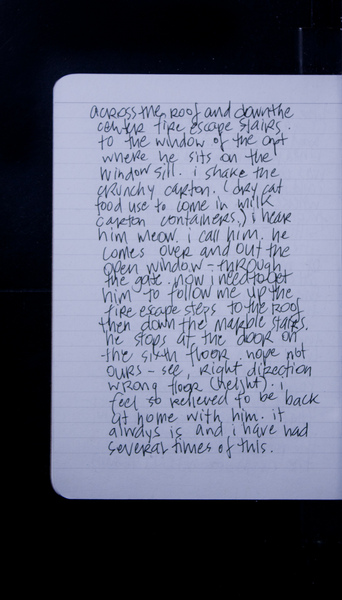 across the roof and down the
center fire escape stairs.
to the window of the apt
where he sits on the
window sill. i shake the
crunchy carton. (dry cat
food use to come in milk
carton containers.) i hear
him meow. i call him. he
comes over and out the
open window - through
the gate. now i need to get
him to follow me up the
fire escape steps to the roof
then down the marble stairs.
he stops at the door on
the sixth floor. nope not
ours - see, right direction
wrong floor (height). i
feel so relieved to be back
at home with him. it
always is and i have had
several times of this.